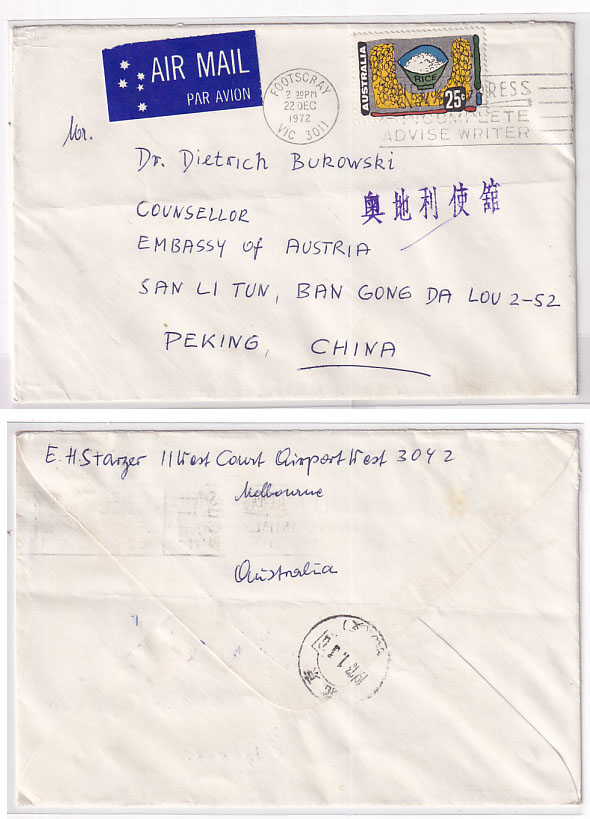 AIR MAIL
PAR AVION
FOOTSCRAY
2 30PM
22 DEC
1972
VIC 3011
AUSTRALIA
RICE
25c
INCOMPLETE
ADVISE WRITER
Mr.
Dr. Dietrich Bukowski
奥地利使舘
COUNSELLOR
EMBASSY of AUSTRIA
SAN LI TUN, BAN GONG DA LOU 2-52
PEKING, CHINA
E. H Starzer 11 West Court Airport West 3042
Melbourne
Australia
1973.1.3
北京